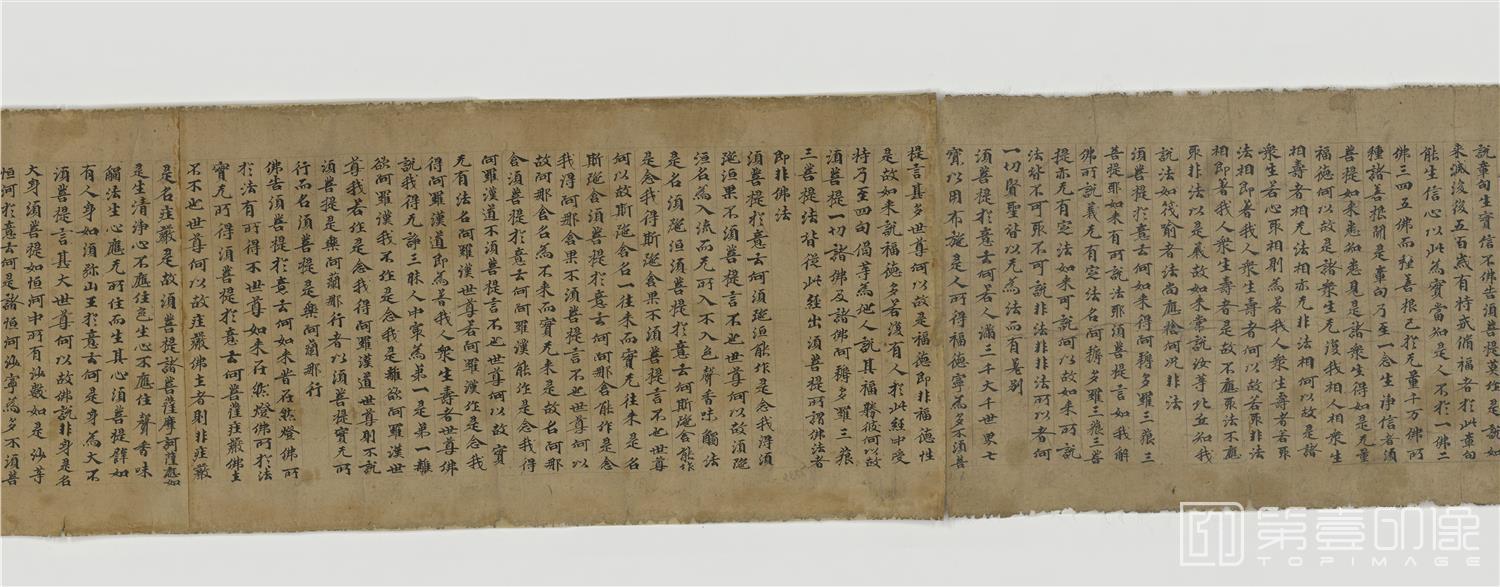 說章句生實信不佛告須菩提莫作是說如
來滅後後五百歲有持戒脩福者於此章句
能生信心以此為實當知是人不於一佛二
佛三四五佛而種善根已於无量千万佛所
種諸善根聞是章句乃至一念生淨信者須
菩提如來悉知悉見是諸衆生得如是无量
福德何以故是諸衆生无復我相人相衆生
相壽者相无法相亦无非法相何以故是諸
衆生若心取相則為著我人衆生壽者若取
法相即著我人衆生壽者何以故若取非法
相即著我人衆生壽者是故不應取法不應
取非法以是義故如來常說汝等比丘知我
說法如筏喻者法尚應捨何況非法
須菩提於意云何如來得阿耨多羅三藐三
菩提耶如來有所說法耶須菩提言如我解
佛所說義无有定法名阿耨多羅三藐三菩
提亦无有定法如來可說何以故如來所說
法皆不可取不可說非法非非法所以者何
一切賢聖皆以无為法而有差別
須菩提於意云何若人滿三千大千世界七
寶以用布施是人所得福德寧為多不須菩
提言甚多世尊何以故是福德即非福德性
是故如來說福德多若復有人於此經中受
持乃至四句偈等為他人說其福勝彼何以故
須菩提一切諸佛及諸佛阿耨多羅三藐
三菩提法皆從此經出須菩提所謂佛法者
即非佛法
須菩提於意云何須陁洹能作是念我得須
陁洹果不須菩提言不也世尊何以故須陁
洹名為入流而无所入不入色聲香味觸法
是名須陁洹須菩提於意云何斯陁含能作
是念我得斯陁含果不須菩提言不也世尊
何以故斯陁含名一往來而實无往來是名
斯陁含須菩提於意云何阿那含能作是念
我得阿那含果不須菩提言不也世尊何以
故阿那含名為不來而實无來是故名阿那
含須菩提於意云何阿羅漢能作是念我得
阿羅漢道不須菩提言不也世尊何以故實
无有法名阿羅漢世尊若阿羅漢作是念我
得阿羅漢道即為著我人衆生壽者世尊佛
說我得无諍三昧人中寂為第一是第一離
欲阿羅漢我不作是念我是離欲阿羅漢世
尊我若作是念我得阿羅漢道世尊則不說
須菩提是樂阿蘭那行者以須菩提實无所
行而名須菩提是樂阿蘭那行
佛告須菩提於意云何如來昔在然燈佛所
於法有所得不世尊如來在然燈佛所於法
實无所得須菩提於意云何菩薩莊嚴佛土
不不也世尊何以故莊嚴佛土者則非莊嚴
是名莊嚴是故須菩提諸菩薩摩訶薩應如
是生清淨心不應住色生心不應住聲香味
觸法生心應无所住而生其心須菩提辟如
有人身如須弥山王於意云何是身為大不
須菩提言甚大世尊何以故佛說非身是名
大身須菩提如恒河中所有沙數如是沙等
恒河於意云何是諸恒河沙寧為多不須菩
第壹印像
TOPIMAGE